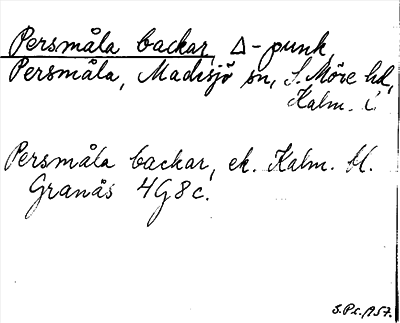 Persmåla backar, Δ-punk,
Persmåla, Madesjö sn, S. Möre hd,
Kalm. l.
Persmåla backar, ek. Kalm. bl.
Granås 4G8c.
S.Pc. 1957.